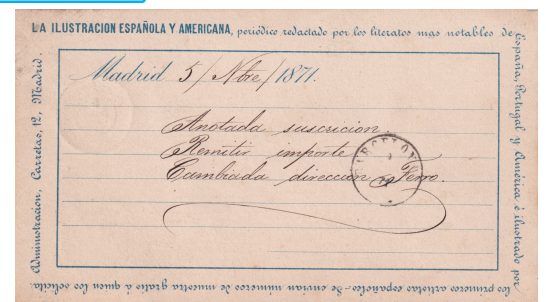 LA ILUSTRACION ESPAÑOLA Y AMERICANA, periódico redactado por los literatos mas notables de
España, Portugal y América é ilustrado por
los primeros artistas españoles-Se envian números de muestra gratis á quien los solicita.
Administracion, Carretas, 12, Madrid.
Madrid 5/Nbre/1871.
Anotada suscricion.
Remitir importe
Cambiada direccion Ferro.
BARCELONA